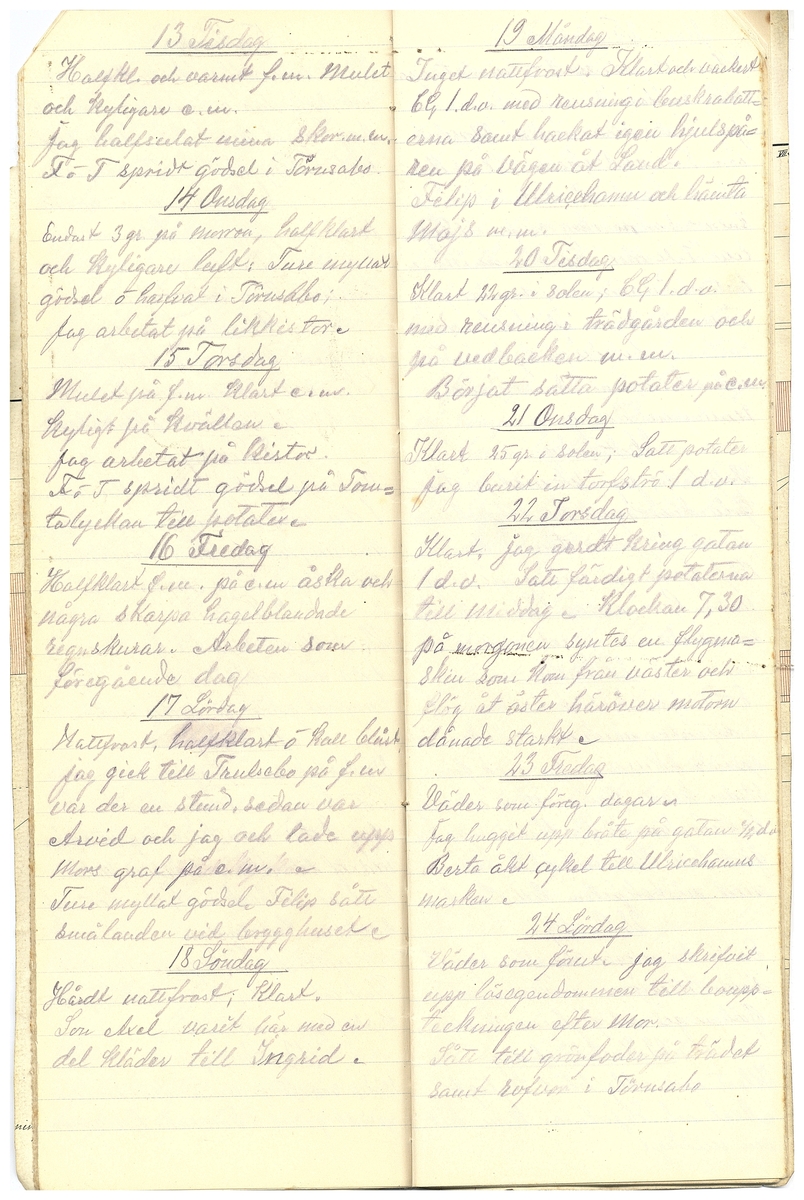 13 Tisdag
Halfkl. och varmt f.m. Mulet
och kyligare e.m.
jag halfsulat mina skor m.m.
F o T spridt gödsel i Törnsabo.
14 Onsdag
Endast 3 gr. på morron, halfklart
och kyligare luft; Ture myllat
gödsel o harfvat i Törnsabo;
Jag arbetat på likkistor.
15 Torsdag
Mulet på f.m. klart e.m.
kyligt på kvällen.
Jag arbetat på kistor.
F o T spridt gödsel på Tom=
talyckan till potater.
16 Fredag
Halfklart f.m. på e.m åska och
några skarpa hagelblandade
regnskurar. Arbeten som
föregående dag
17 Lördag
Nattfrost, halfklart o kall blåst
jag gick till Trulsebo på f.m
var der en stund, sedan var
Arvid och jag och lade upp
Mors graf på e.m.
Ture myllat gödsel. Filip sått
smålanden vid brygghuset
18 Söndag
Hårdt nattfrost; Klart.
Son Axel varit här med en
del kläder till Ingrid.
19 Måndag
Inget nattfrost. Klart och vackert
CG 1.d.v. med rensning i buskrabatt=
erna samt hackat igen hjulspå=
ren på vägen åt Lund.
Filip i Ulricehamn och hämta
Majs m.m.
20 Tisdag
Klart 22 gr. i solen; CG 1.d.v.
med rensning i trädgården och
på vedbacken m.m.
Börjat sätta potater på e.m
21 Onsdag
Klart 25 gr i solen; Satt potater
Jag burit in torfströ 1 d.v.
22 Torsdag
Klart, jag gerdt kring gatan
1 d.v. Satt färdigt potaterna
till middag. Klockan 7,30
på morgonen syntes en flygma=
skin som kom från väster och
flög åt öster häröver motorn
dånade starkt.
23 Fredag
Väder som föreg. dagar.
Jag huggit upp bråte på gatan ½ d.v
Berta åkt cykel till Ulricehamns
marken.
24 Lördag
Väder som förut. jag skrifvit
upp lösegendommen till boupp=
teckningen efter Mor.
Sått till grönfoder på trädet
samt rofvor i Törnsabo